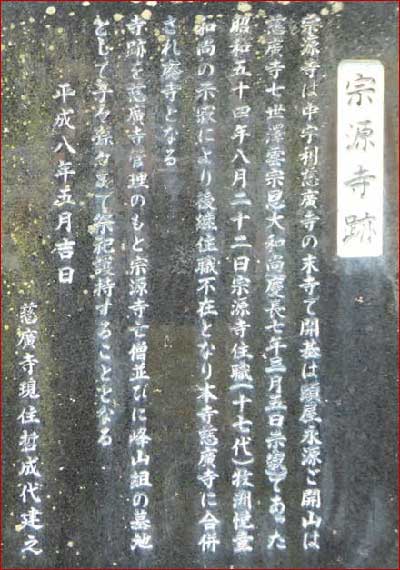 宗源寺跡
宗源寺は中宇利慈廣寺の末寺で開基は 屋永源ご開山は
慈廣寺七世澤雲宗恩大和尚慶長七年三月五日示寂であった
昭和五十四年八月二十二日宗源寺住職(十七代)牧洲俊童
和尚の示寂により後継住職不在となり本寺慈廣寺に合併
され廃寺となる
寺跡を慈廣寺管理のもと宗源寺亡僧並びに峰山組の墓地
として 祭祀護持することとなる
平成八年五月吉日
慈廣寺現住哲成代建之